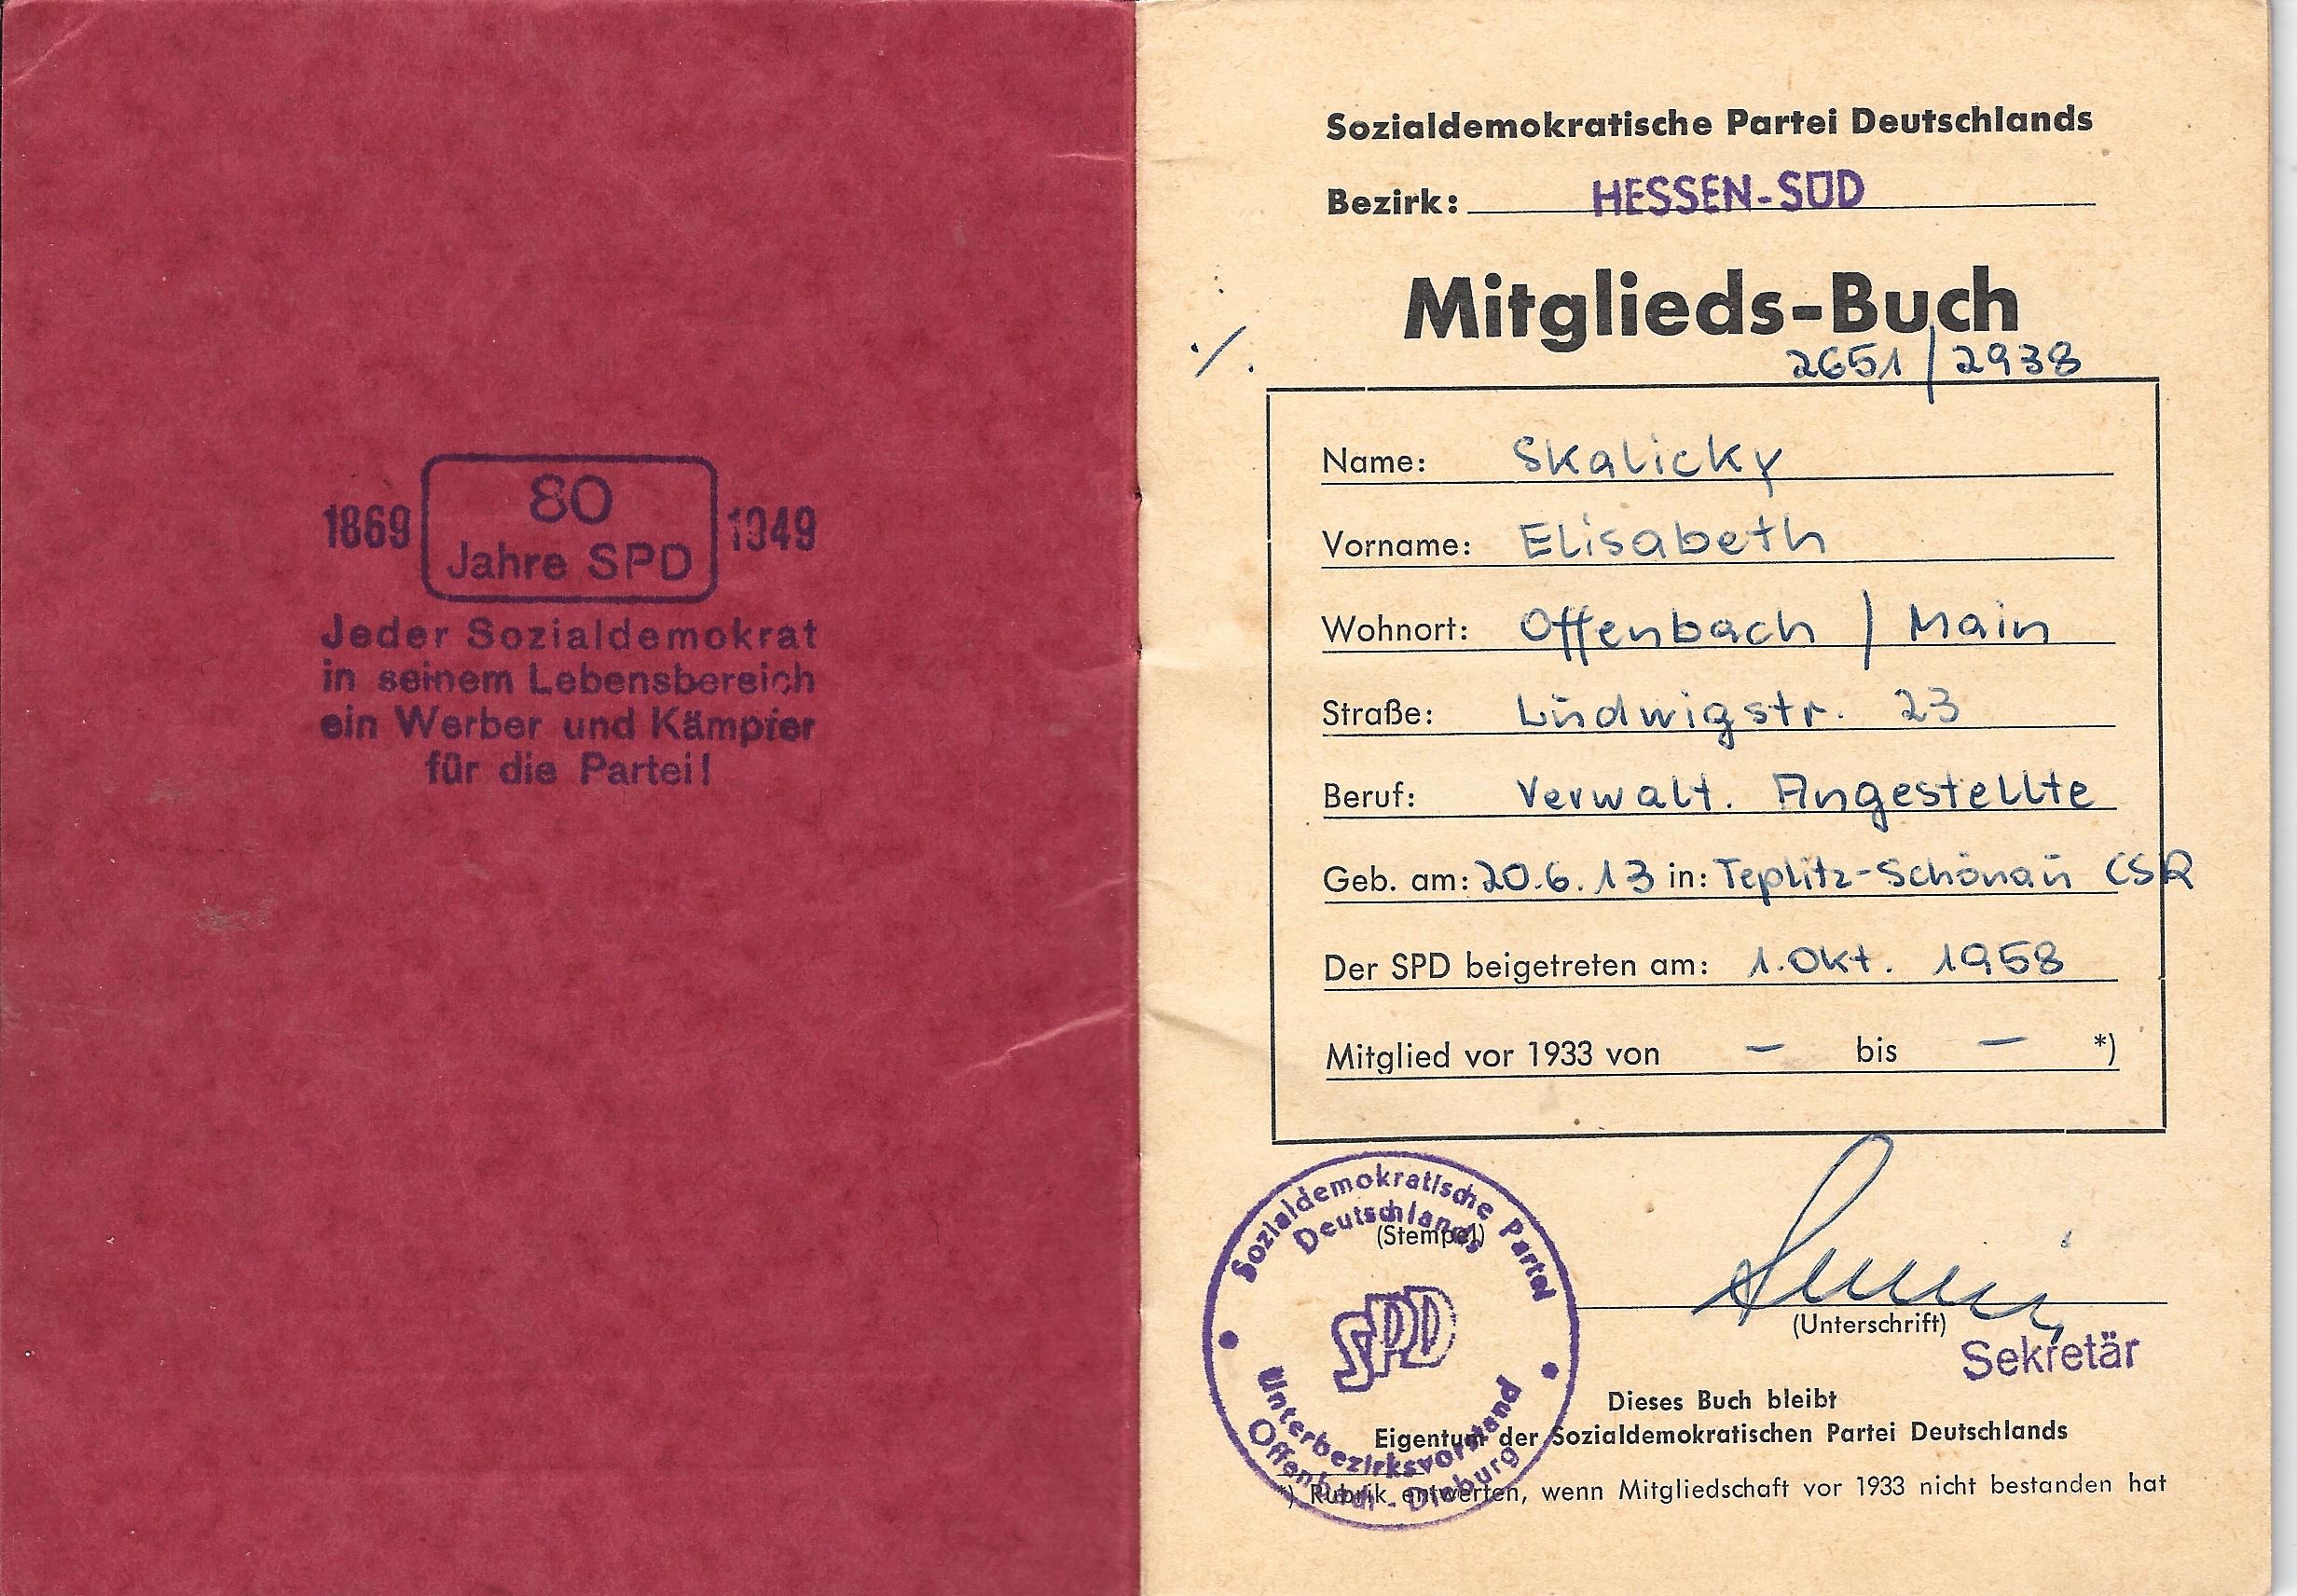 1869 80 1949
Jahre SPD
Jeder Sozialdemokrat
in seinem Lebensbereich
ein Werber und Kämpfer
für die Partei!
Sozialdemokratische Partei Deutschlands
Bezirk: HESSEN-SÜD
Mitglieds-Buch
2651/2938
Name: Skalicky
Vorname: Elisabeth
Wohnort: Offenbach / Main
Straße: Ludwigstr. 23
Beruf: Verwalt. Angestellte
Geb. am: 20.6.13 in: Teplitz-Schönau CSR
Der SPD beigetreten am: 1. Okt. 1958
Mitglied vor 1933 von — bis — *)
Sozialdemokratische Partei
Deutschlands
(Stempel)
SPD
Unterbezirksvorstand
Offenbach - Dieburg
(Unterschrift)
Sekretär
Dieses Buch bleibt
Eigentum der Sozialdemokratischen Partei Deutschlands
*) Rubrik entwerten, wenn Mitgliedschaft vor 1933 nicht bestanden hat